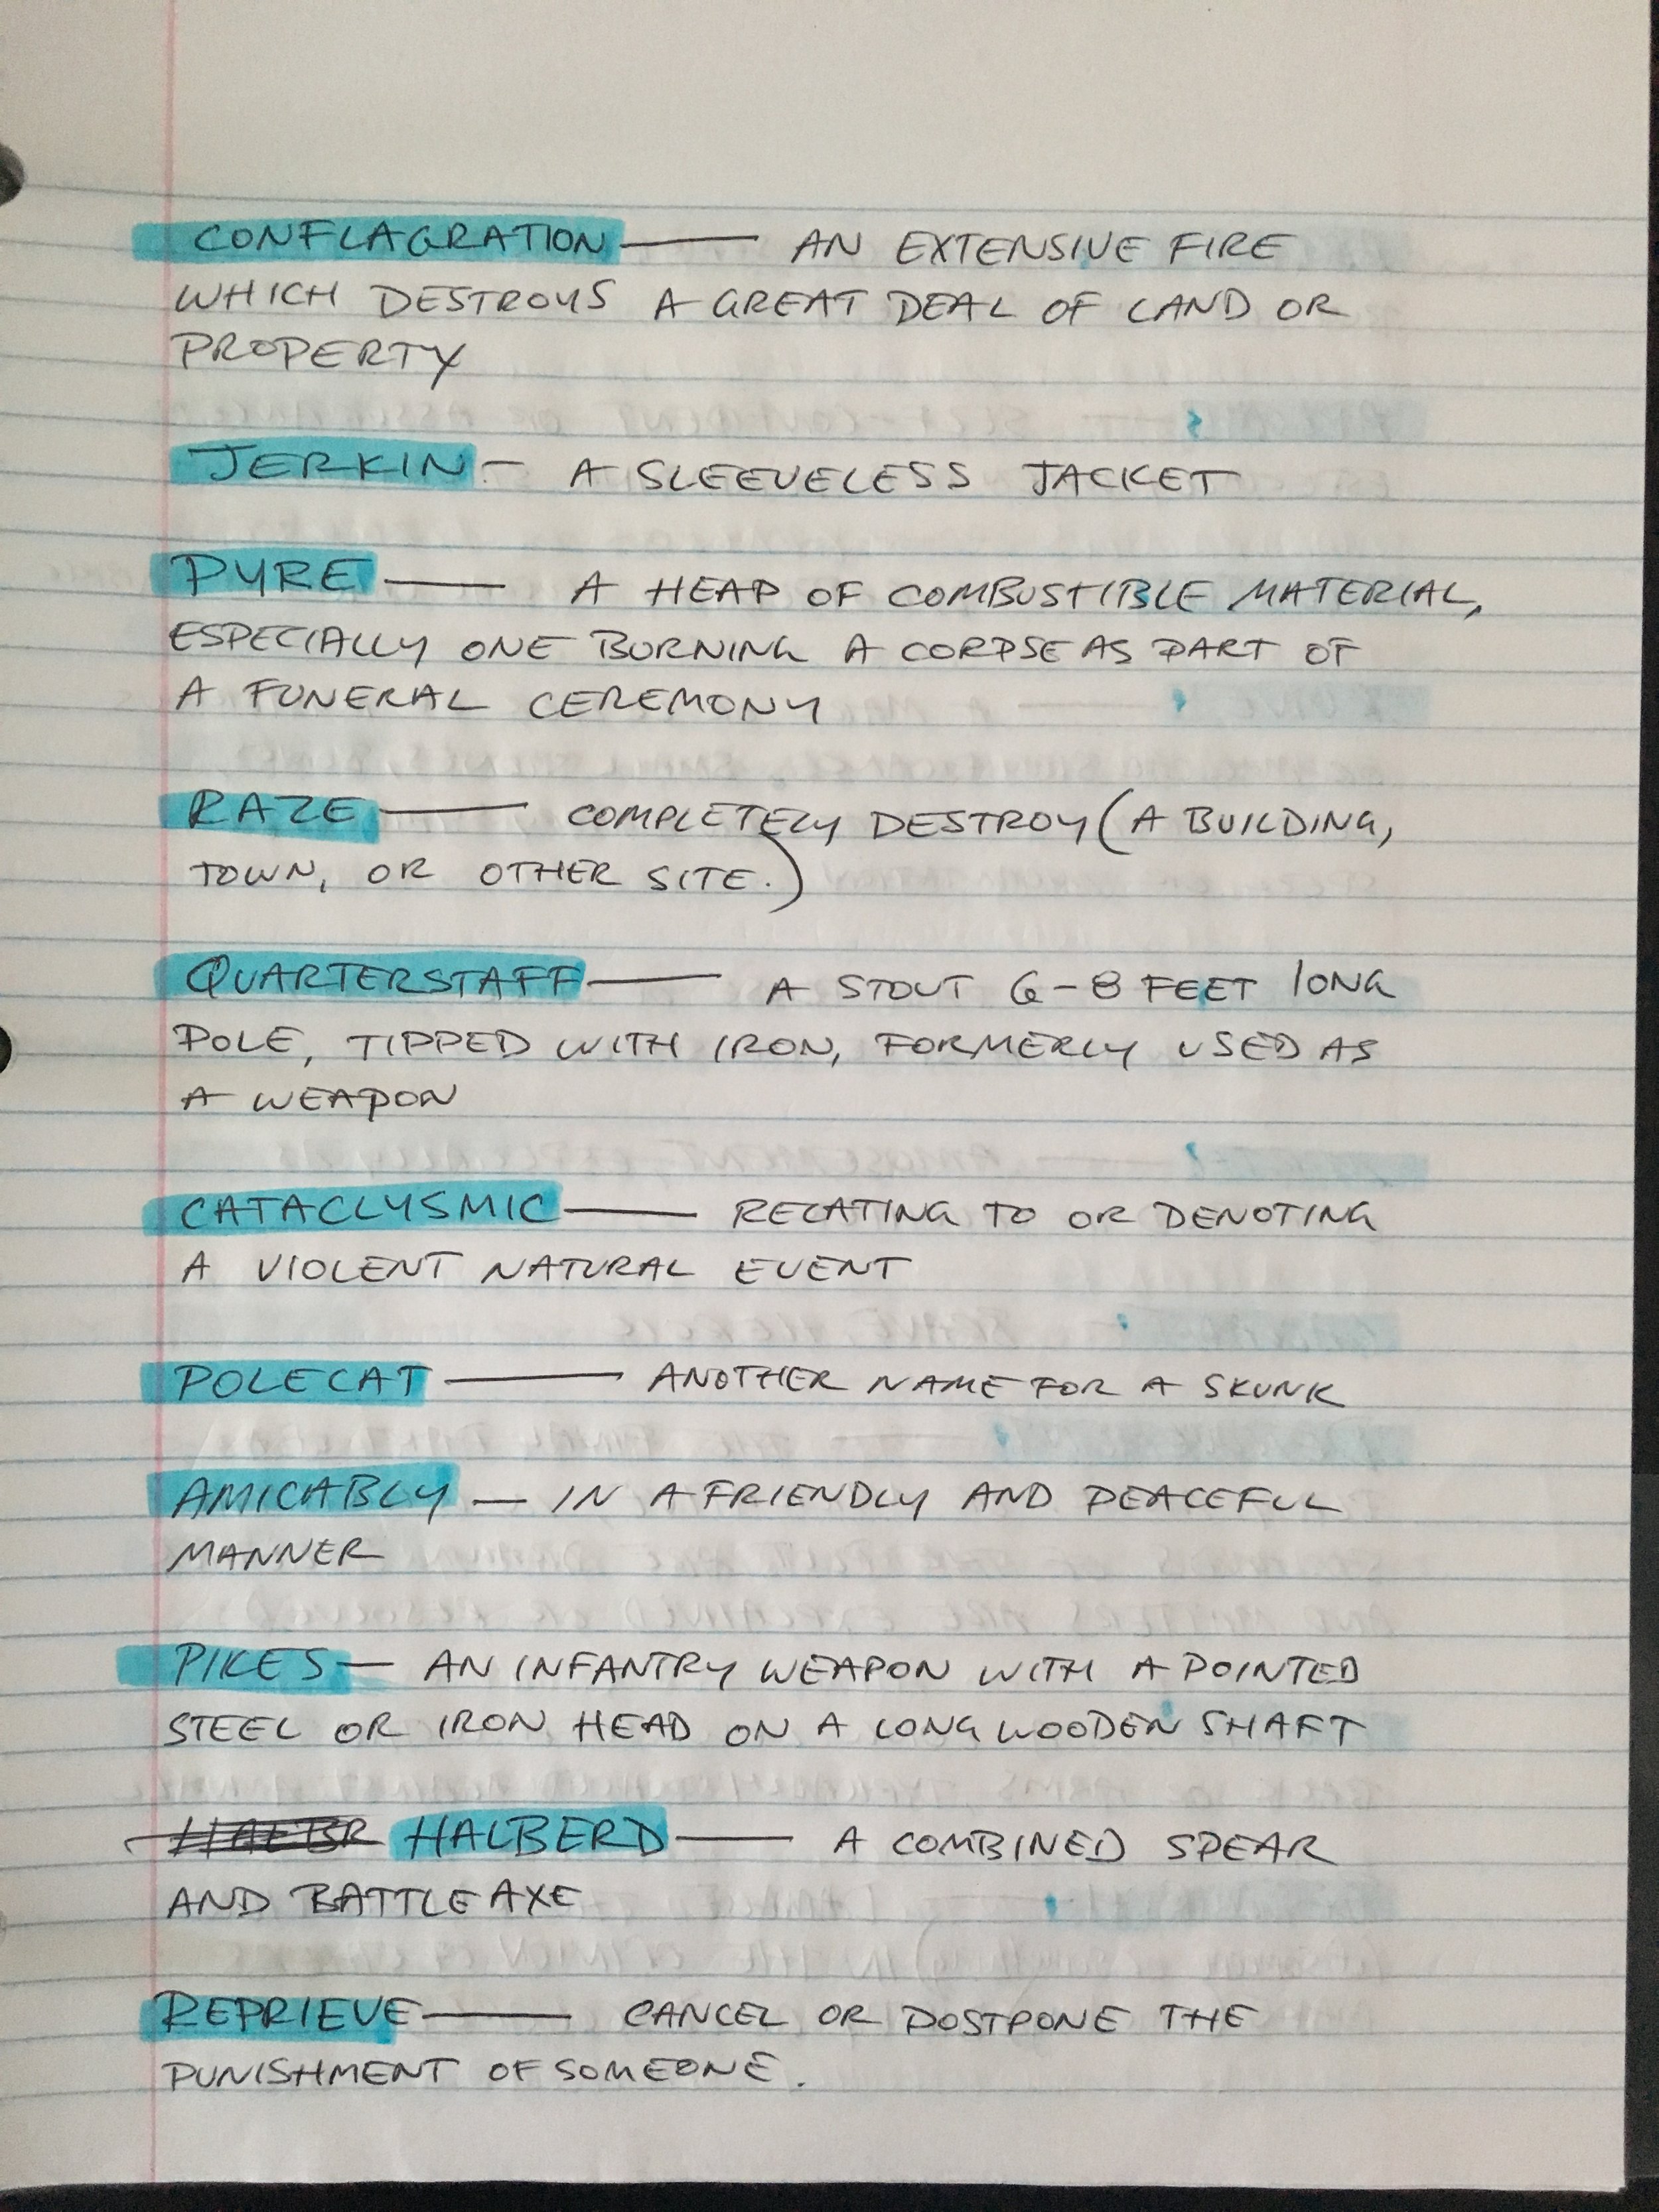 CONFLAGRATION — AN EXTENSIVE FIRE
WHICH DESTROYS A GREAT DEAL OF LAND OR
PROPERTY
JERKIN — A SLEEVELESS JACKET
PYRE — A HEAP OF COMBUSTIBLE MATERIAL,
ESPECIALLY ONE BURNING A CORPSE AS PART OF
A FUNERAL CEREMONY
RAZE — COMPLETELY DESTROY (A BUILDING,
TOWN, OR OTHER SITE.)
QUARTERSTAFF — A STOUT 6-8 FEET LONG
POLE, TIPPED WITH IRON, FORMERLY USED AS
A WEAPON
CATACLYSMIC — RELATING TO OR DENOTING
A VIOLENT NATURAL EVENT
POLECAT — ANOTHER NAME FOR A SKUNK
AMICABLY — IN A FRIENDLY AND PEACEFUL
MANNER
PIKES — AN INFANTRY WEAPON WITH A POINTED
STEEL OR IRON HEAD ON A LONG WOODEN SHAFT
HALBERD — A COMBINED SPEAR
AND BATTLE AXE
REPRIEVE — CANCEL OR POSTPONE THE
PUNISHMENT OF SOMEONE.